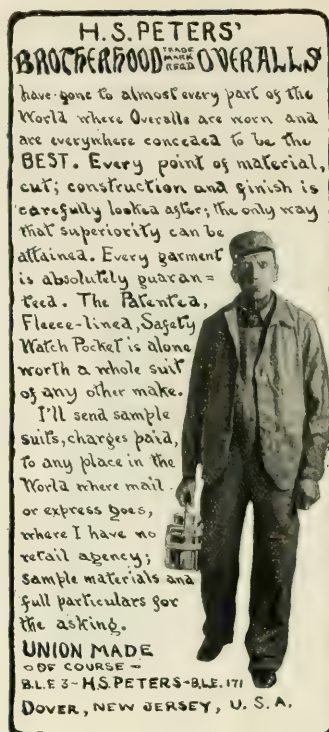 H.S. PETERS'
BROTHERHOOD TRADE MARK REG'D OVERALLS
have gone to almost every part of the
World where Overalls are worn and
are everywhere conceded to be the
BEST. Every point of material,
cut; construction and finish is
carefully looked after; the only way
that superiority can be
attained. Every garment
is absolutely guaran=
teed. The Patented,
Fleece-lined, Safety
Watch Pocket is alone
worth a whole suit
of any other make.
I'll send sample
suits, charges paid,
to any place in the
World where mail
or express goes,
where I have no
retail agency;
sample materials and
full particulars for
the asking.
UNION MADE
-OF COURSE-
B.L.E 3-H.S. PETERS-B.L.E. 171
DOVER, NEW JERSEY, U.S.A.